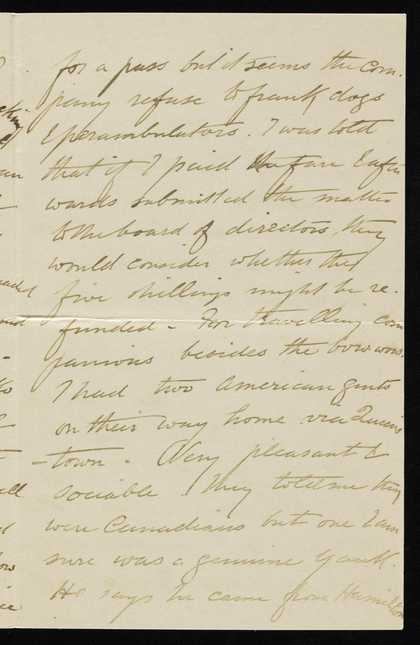 for a pass but it seems the com-
pany refuse to frank dogs
& perambulators. I was told
that if I paid the fare & after
wards submitted the matter
to the board of directors, they
would consider whether the
five shillings might be re-
funded - For travelling com
panions besides the bow wows
I had two American gents
on their way home via Queens
-town - Very pleasant &
sociable. They told me they
were Canadians but one I am
sure was a genuine Yank.
He says he came from Hamilton